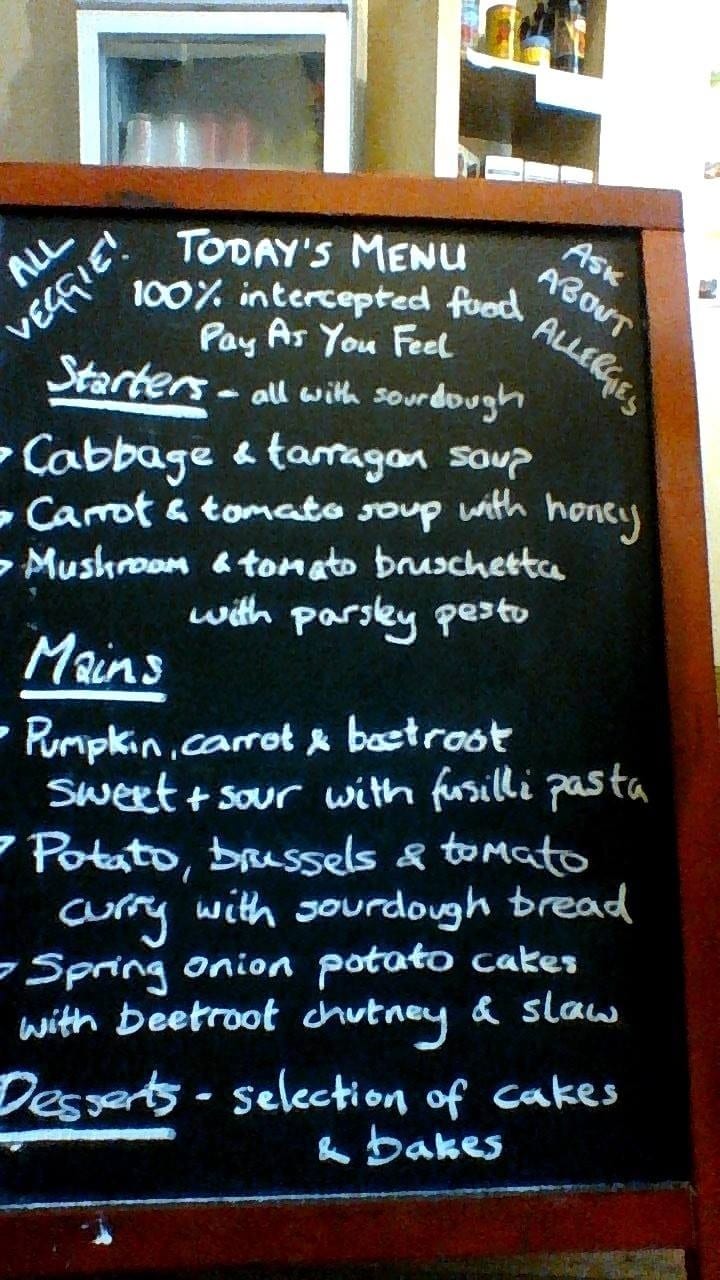 ALL VEGGIE!
TODAY'S MENU
ASK ABOUT ALLERGIES
100% intercepted food
Pay As You Feel
Starters - all with sourdough
Cabbage & tarragon soup
Carrot & tomato soup with honey
Mushroom & tomato bruschetta
with parsley pesto
Mains
Pumpkin, carrot & beetroot
sweet + sour with fusilli pasta
Potato, brussels & tomato
curry with sourdough bread
Spring onion potato cakes
with beetroot chutney & slaw
Desserts - selection of cakes
& bakes